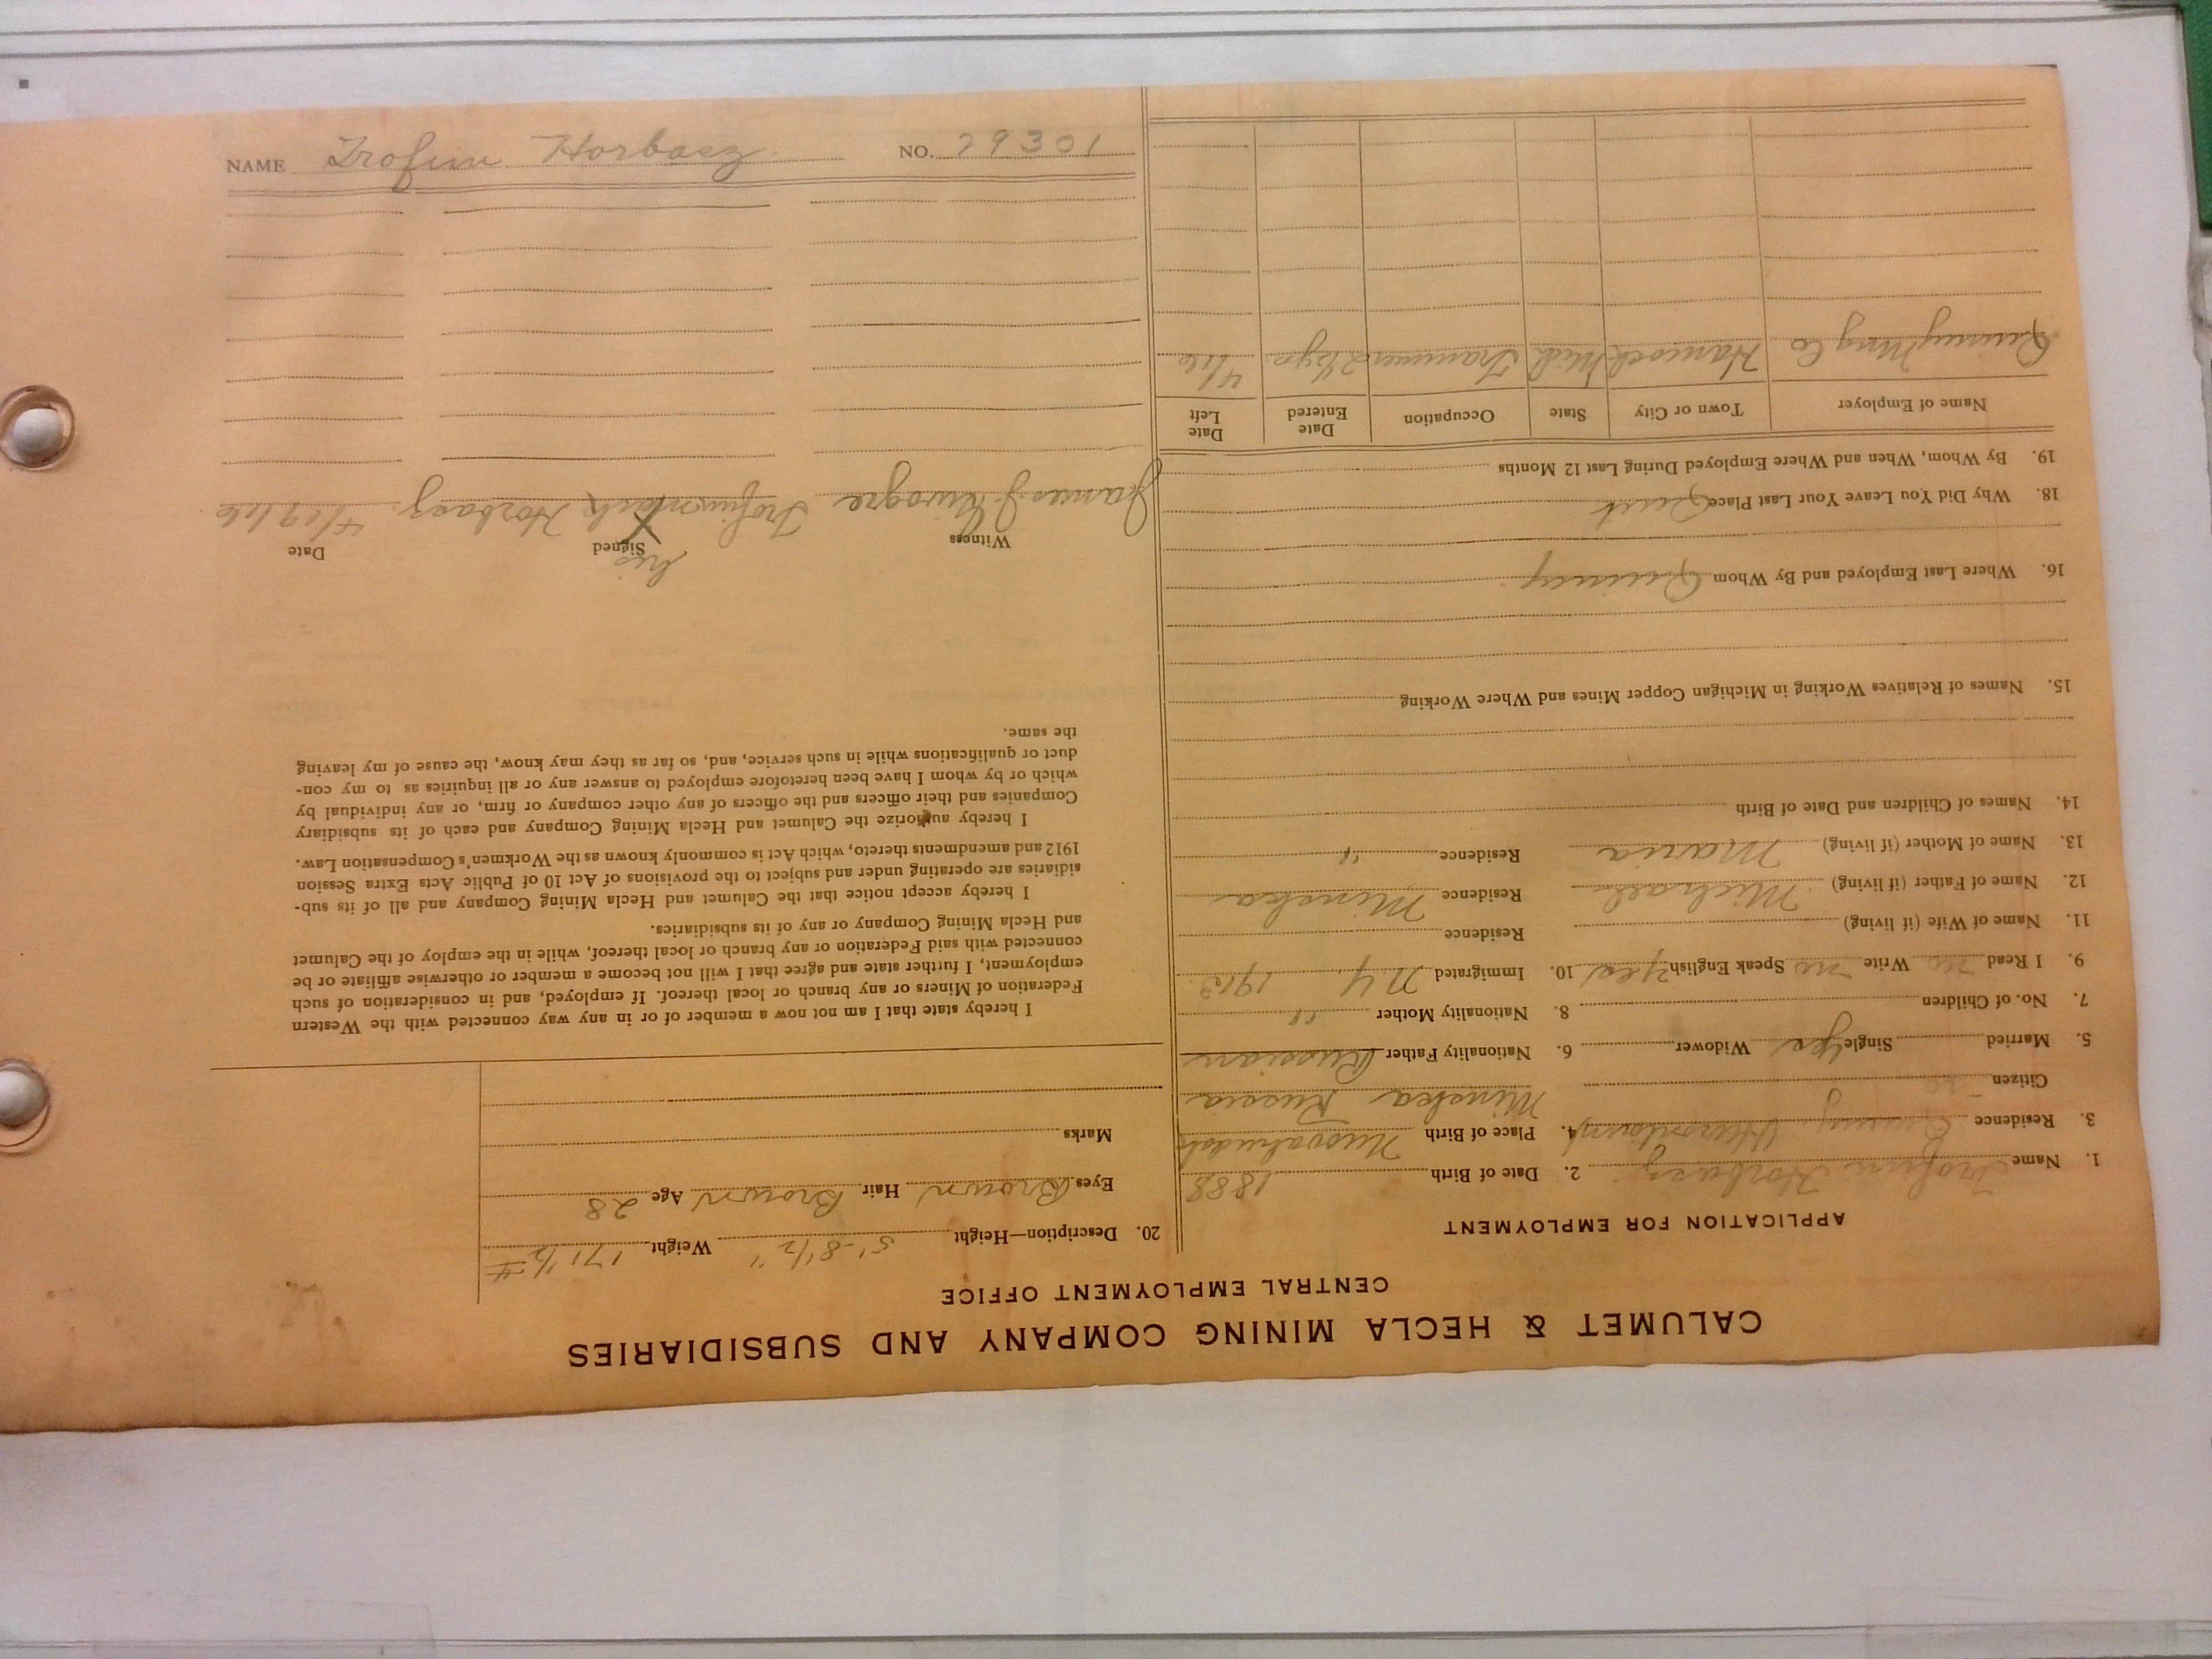 CALUMET & HECLA MINING COMPANY AND SUBSIDIARIES
CENTRAL EMPLOYMENT OFFICE
APPLICATION FOR EMPLOYMENT
1. Name Trofim Horbacz 2. Date of Birth 1888
3. Residence Quincy 4. Place of Birth
Citizen no Minska Russia
5. Married Single Yes Widower 6. Nationality Father Russian
7. No. of Children 8. Nationality Mother "
9. I Read no Write no Speak English Yes 10. Immigrated N Y. 1913
11. Name of Wife (if living) Residence
12. Name of Father (if living) Michael Residence Minska
13. Name of Mother (if living) Maria Residence "
14. Names of Children and Date of Birth
15. Names of Relatives Working in Michigan Copper Mines and Where Working
16. Where Last Employed and By Whom Quincy
18. Why Did You Leave Your Last Place Quit
19. By Whom, When and Where Employed During Last 12 Months
Name of Employer Town or City State Occupation Date Entered Date Left
Quincy Mng Co Hancock Mich Trammer 2½ yrs 4/16
20. Description—Height 5'-8½" Weight 171½ #
Eyes Brown Hair Brown Age 28
Marks
I hereby state that I am not now a member of or in any way connected with the Western
Federation of Miners or any branch or local thereof. If employed, and in consideration of such
employment, I further state and agree that I will not become a member or otherwise affiliate or be
connected with said Federation or any branch or local thereof, while in the employ of the Calumet
and Hecla Mining Company or any of its subsidiaries.
I hereby accept notice that the Calumet and Hecla Mining Company and all of its sub-
sidiaries are operating under and subject to the provisions of Act 10 of Public Acts Extra Session
1912 and amendments thereto, which Act is commonly known as the Workmen's Compensation Law.
I hereby authorize the Calumet and Hecla Mining Company and each of its subsidiary
Companies and their officers and the officers of any other company or firm, or any individual by
which or by whom I have been heretofore employed to answer any or all inquiries as to my con-
duct or qualifications while in such service, and, so far as they may know, the cause of my leaving
the same.
Witness Signed Date
his
James J. Trofim X Horbacz 4/19/16
mark
NAME Trofim Horbacz NO. 29301